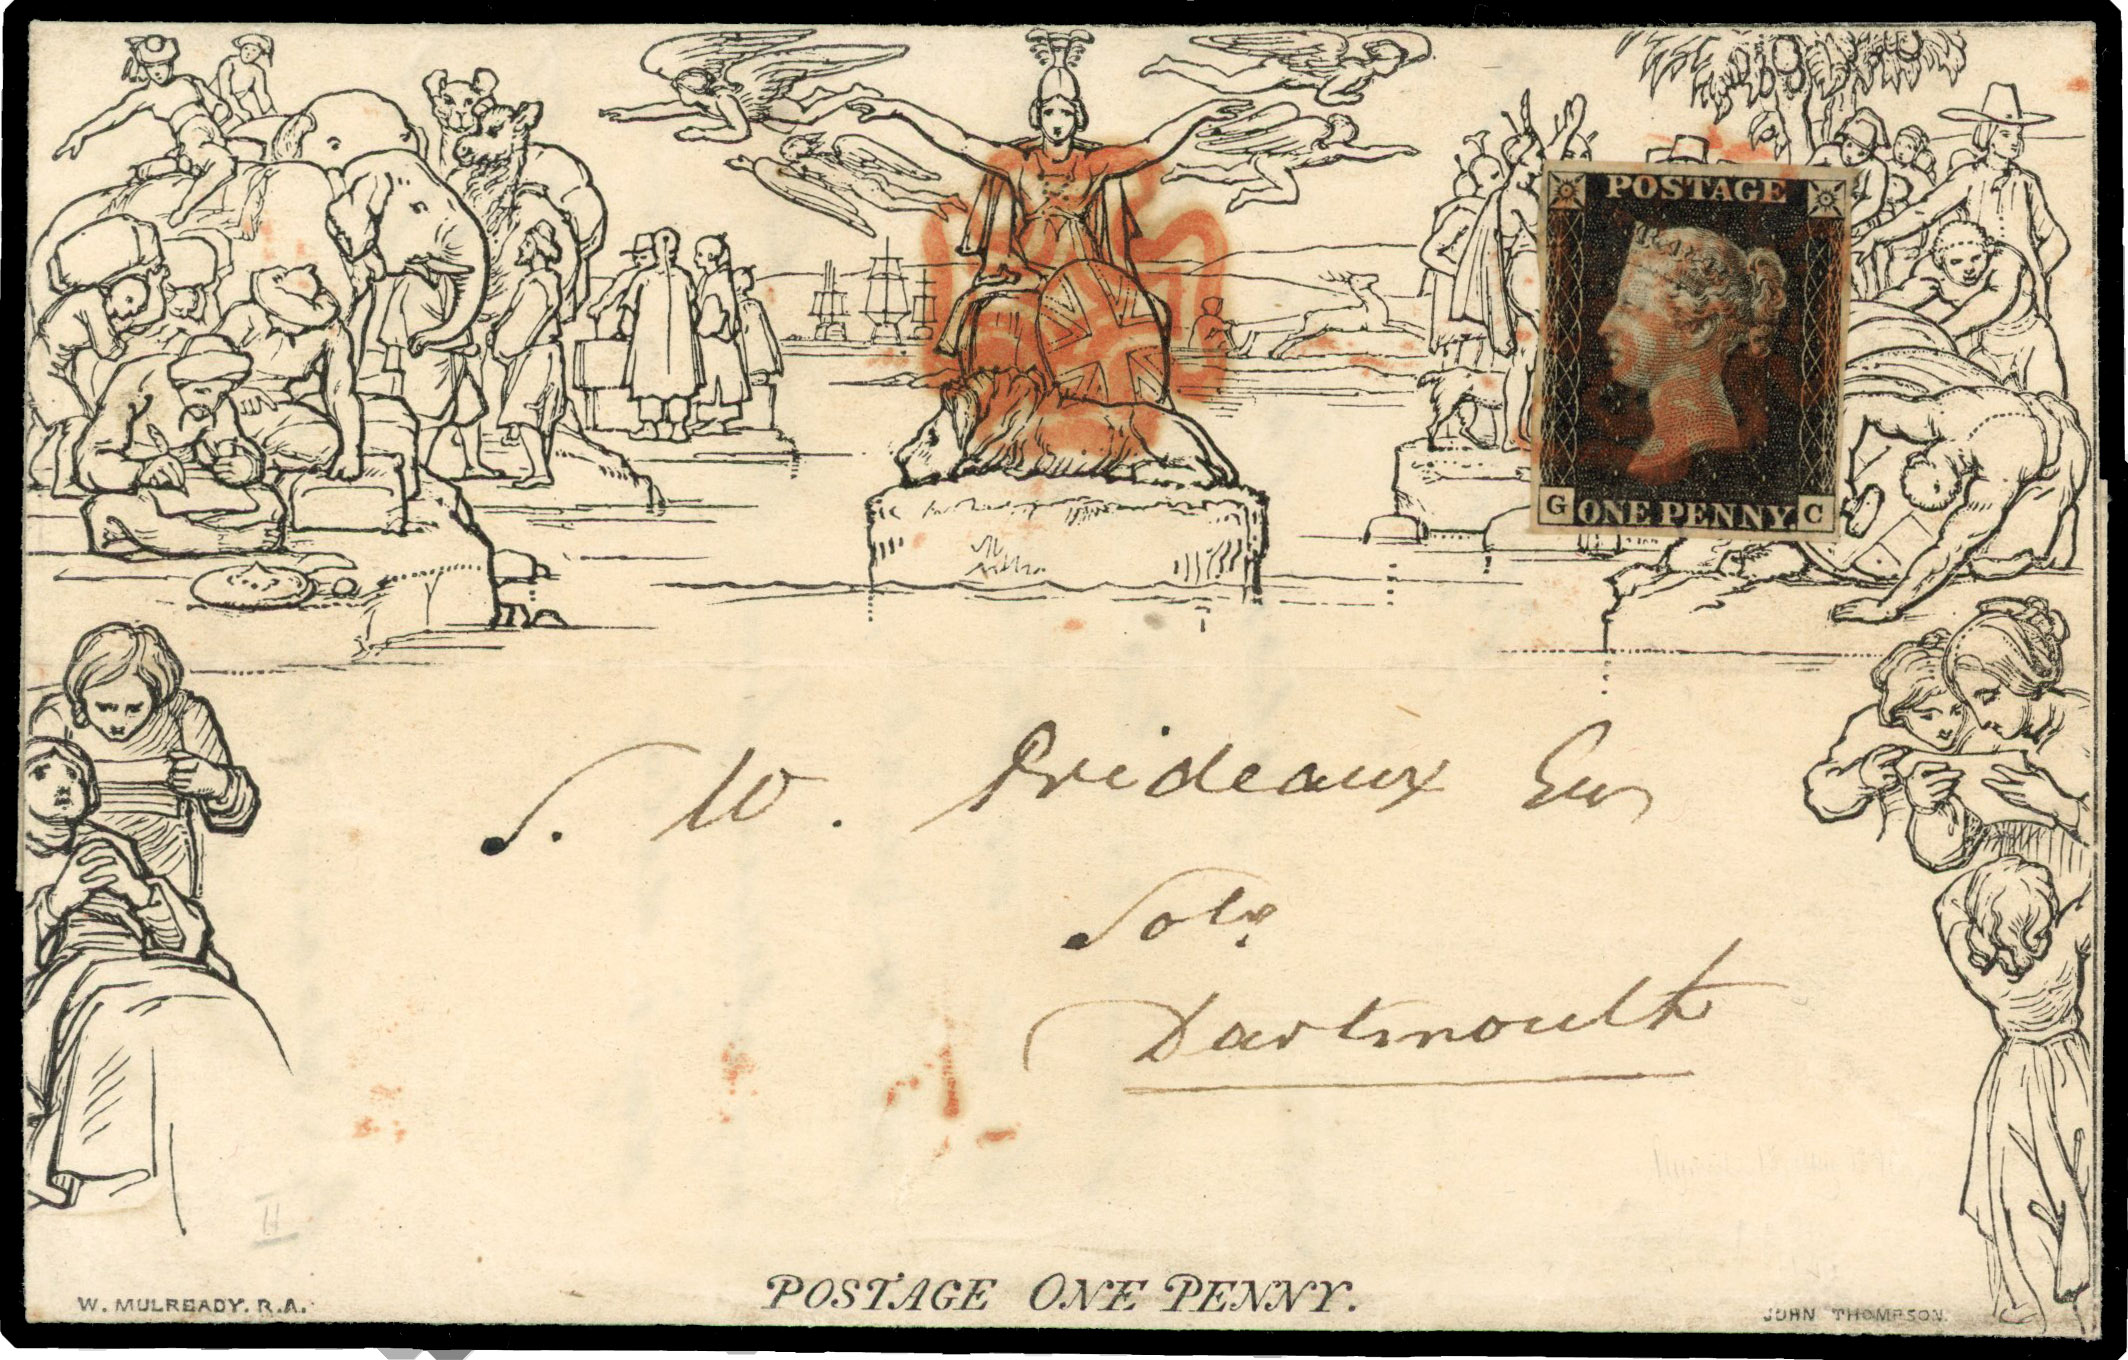 POSTAGE
G ONE PENNY C
S. W. Prideaux Esqr
Solr
Dartmouth
POSTAGE ONE PENNY.
W. MULREADY. R.A.
JOHN THOMPSON.